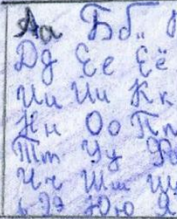 Аа Бб
Дд Ее Её
Ии Йй Кк
Нн Оо Пп
Тт Уу
Чч Шш
ь Ээ Юю